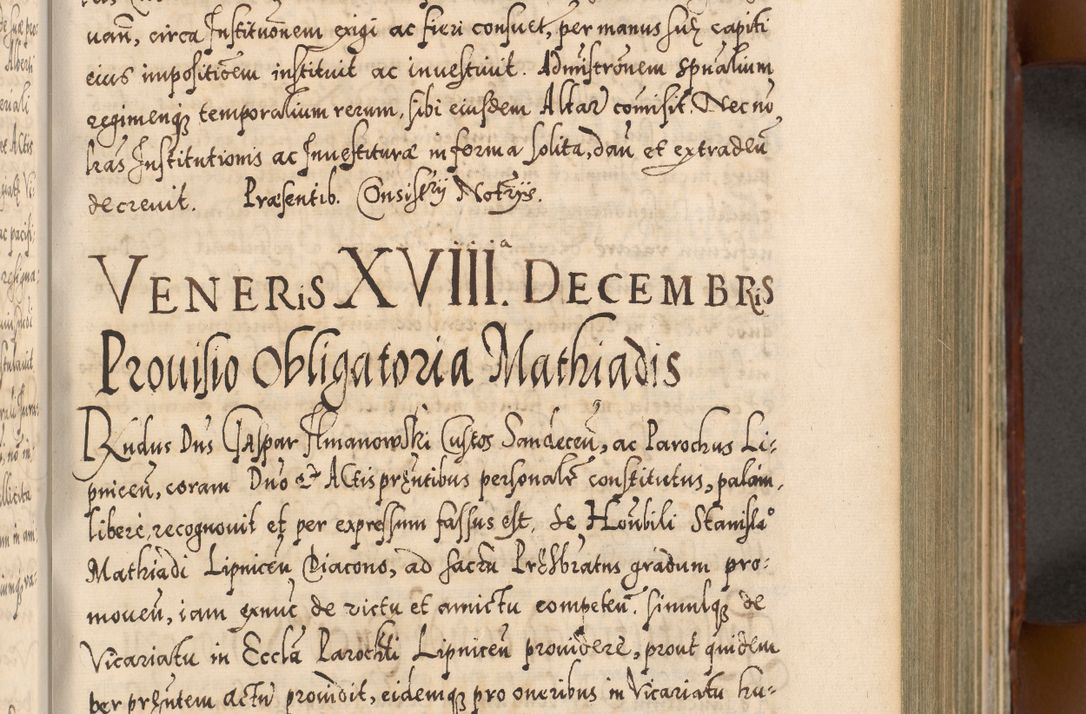 uan̄, circa Institūonem exigi ac fieri consuet, per manus suę capiti
eius impositiōem instituit ac inuestiuit. Admīstrōnem spūalium
regimenq₃ temporalium rerum, sibi eiusdem Altar̄ comīsit. Nec nō
lras Institutionis ac Inuestituræ in forma solita, dan̄ et extraden̄
decreuit. Præsentib. Consistrÿ Notrÿs.
VENERIS XVIII.ª DECEMBRIS
Prouisio Obligatoria Mathiadis
Rndus Dn̄s Gaspar Ilmanowski Custos Sandecen̄, ac Parochus Li-
pnicen̄, coram Dn̄o & Actis prn̄tibus personalr̄ constitutus, palàm,
liberè, recognouit et per expressum fassus est, se Honbili Stanislaº
Mathiadi Lipnicen̄ Diacono, ad sacrū Præsbratus gradum pro-
mouen̄, iam exnuc de victu et amictu competen̄. simulq₃ de
Vicariatu in Eccla Parochli Lipnicen̄ prouidere, prout quidem
per prn̄tem actū prouidit, eidemq₃ pro oneribus in Vicariatu hu-